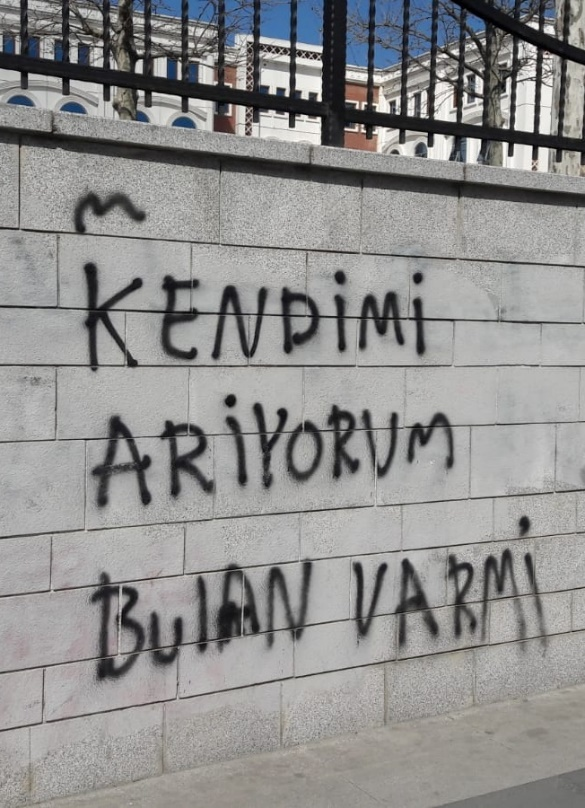 m
KENDİMİ
ARİYORUM
BulAN VARMİ